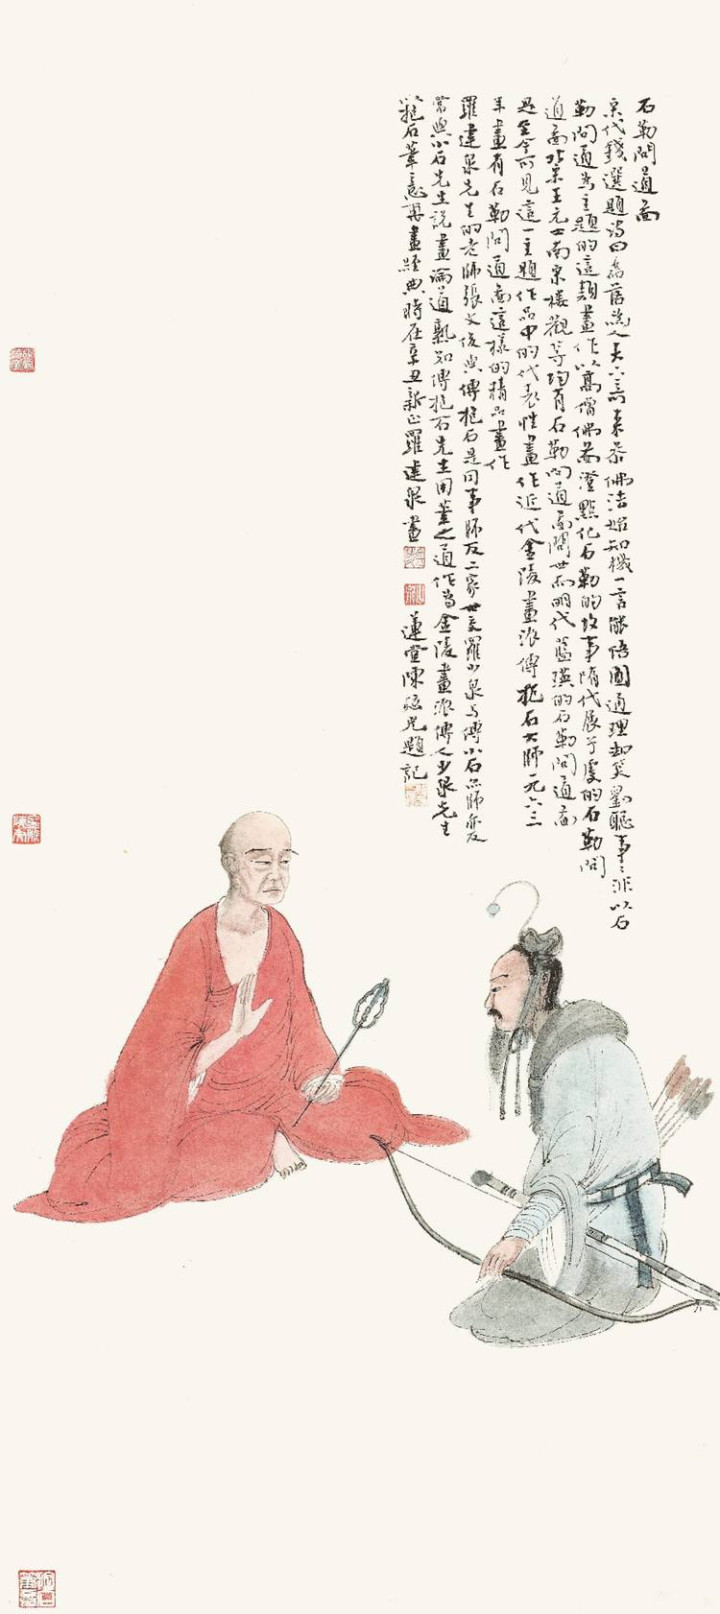 石勒問道圖
宋代錢選題詩曰 大六 素恭佛法始知機一言能悟圓通理却笑劉聰事事非以石
勒問道為主題的這類畫作以高僧佛圖澄點化石勒的故事隋代展子虔的石勒問
道圖北宋王元士南宋樓觀等均有石勒問道圖問世而明代藍瑛的石勒問道圖
是至今可見這一主題作品中的代表性畫作近代金陵畫派傅抱石大師一九六三
年畫有石勒問道圖這樣的精品畫作
羅建泉先生的老師張文俊與傅抱石是同事師友二家世交羅少泉与傅小石亦師亦友
常與小石先生說畫論道熟知傅抱石先生用筆之道作為金陵畫派傳人少泉先生
以抱石筆意再畫經典時在辛丑新正羅建泉畫
蓮堂陳 題記